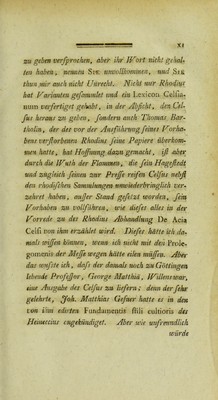 XI
zu geben versprochen, aber ihr Wort nicht gehal-
ten haben, nennen Sie unvollkommen, und Sie
thun mir auch nicht Unrecht. Nicht nur Rhodius
hat Varianten gesammlet und ein Lexicon Celsia-
num verfertiget gehabt, in der Absicht, den Cel-
sus heraus zu geben, sondern auch Thomas Bar-
tholin, der des vor der Ausführung seines Vorha-
bens verstorbenen Rhodius seine Papiere überkom-
men hatte, hat Hoffnung dazu gemacht, ist aber
durch die Wuth der Flammen, die sein Hagestedt
und zugleich seinen zur Presse reifen Celsus nebst
den rhodischen Sammlungen unwiederbringlich ver-
zehret haben, außer Stand gesetzt worden, sein
Vorhaben zu vollführen, wie dieses alles in der
Vorrede zu des Rhodius Abhandlung De Acia
Celsi von ihm erzählet wird. Dieses hätte ich da-
mals wissen können, wenn ich nicht mit den Prole-
gomenis der Messe wegen hätte eilen müssen. Aber
das wuste ich, daß der damals noch zu Göttingen
lebende Professor, George Matthiä, Willens war,
eine Ausgabe des Celsus zu liefern; denn der sehr
gelehrte, Joh. Matthias Gesner hatte es in den
von ihm edirten Fundamentis stili cultioris des
Heineccius angekündiget. Aber wie unfreundlich
würde